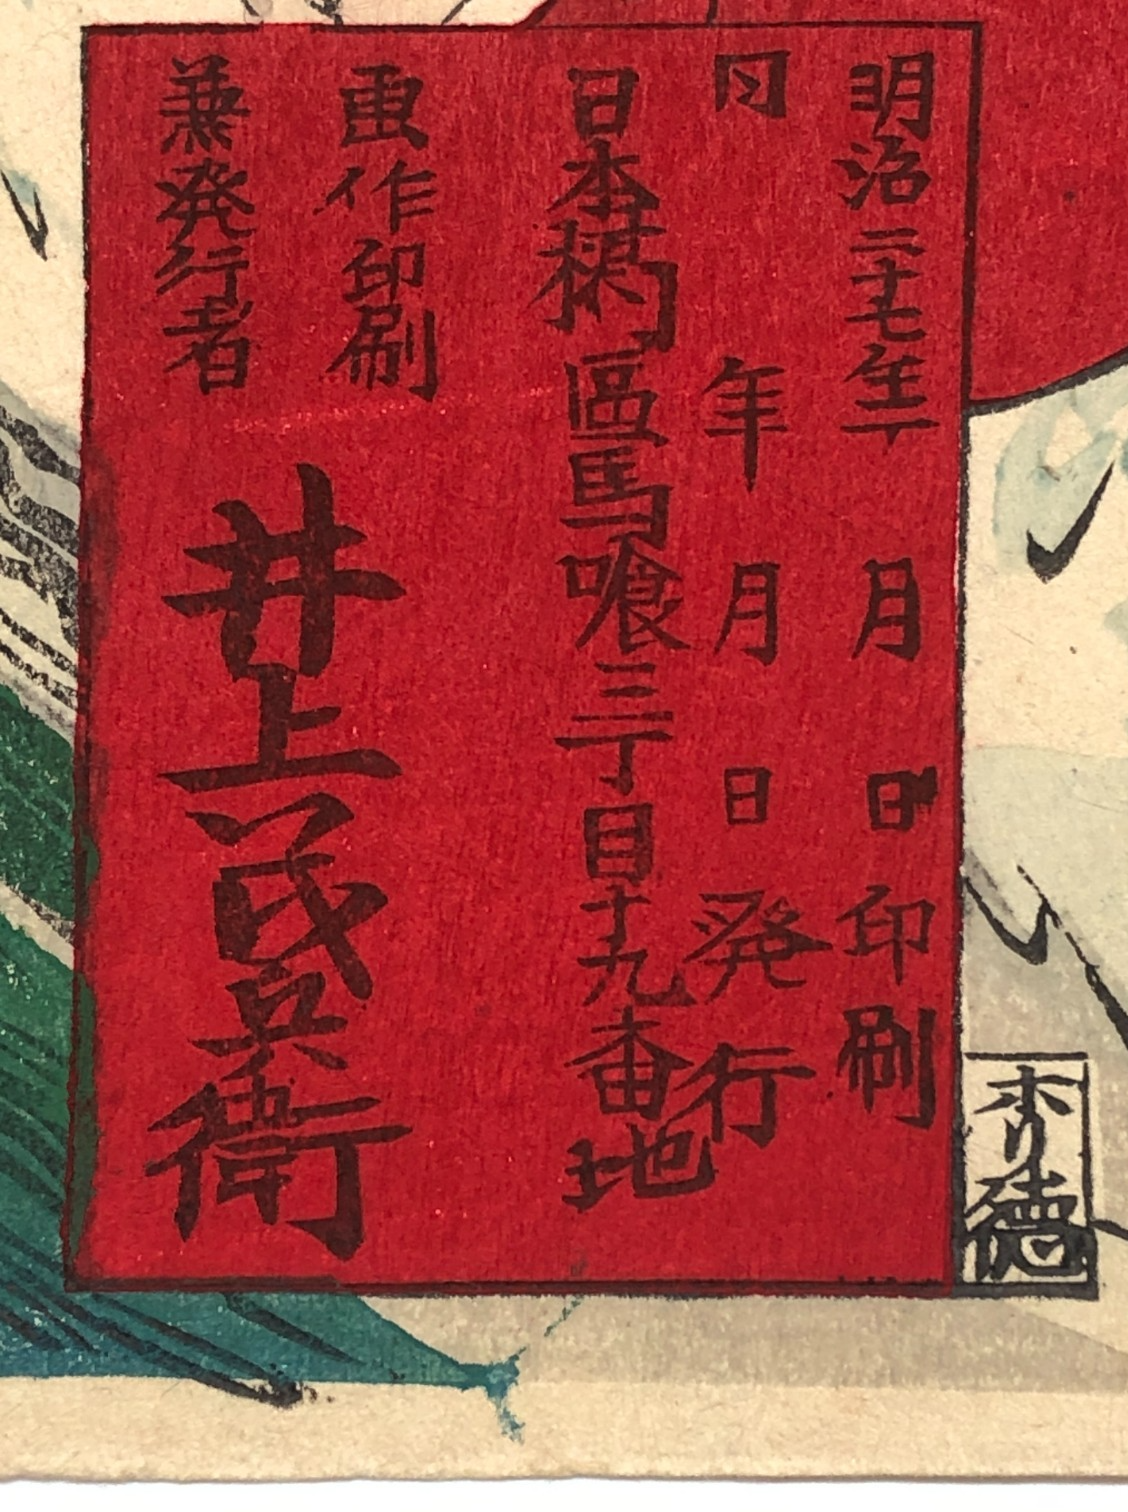 明治二十七年 月 日印刷
同 年 月 日発行
日本橋區馬喰三丁目十九番地
画作印刷
兼発行者
井上茂兵衛
ホリ徳